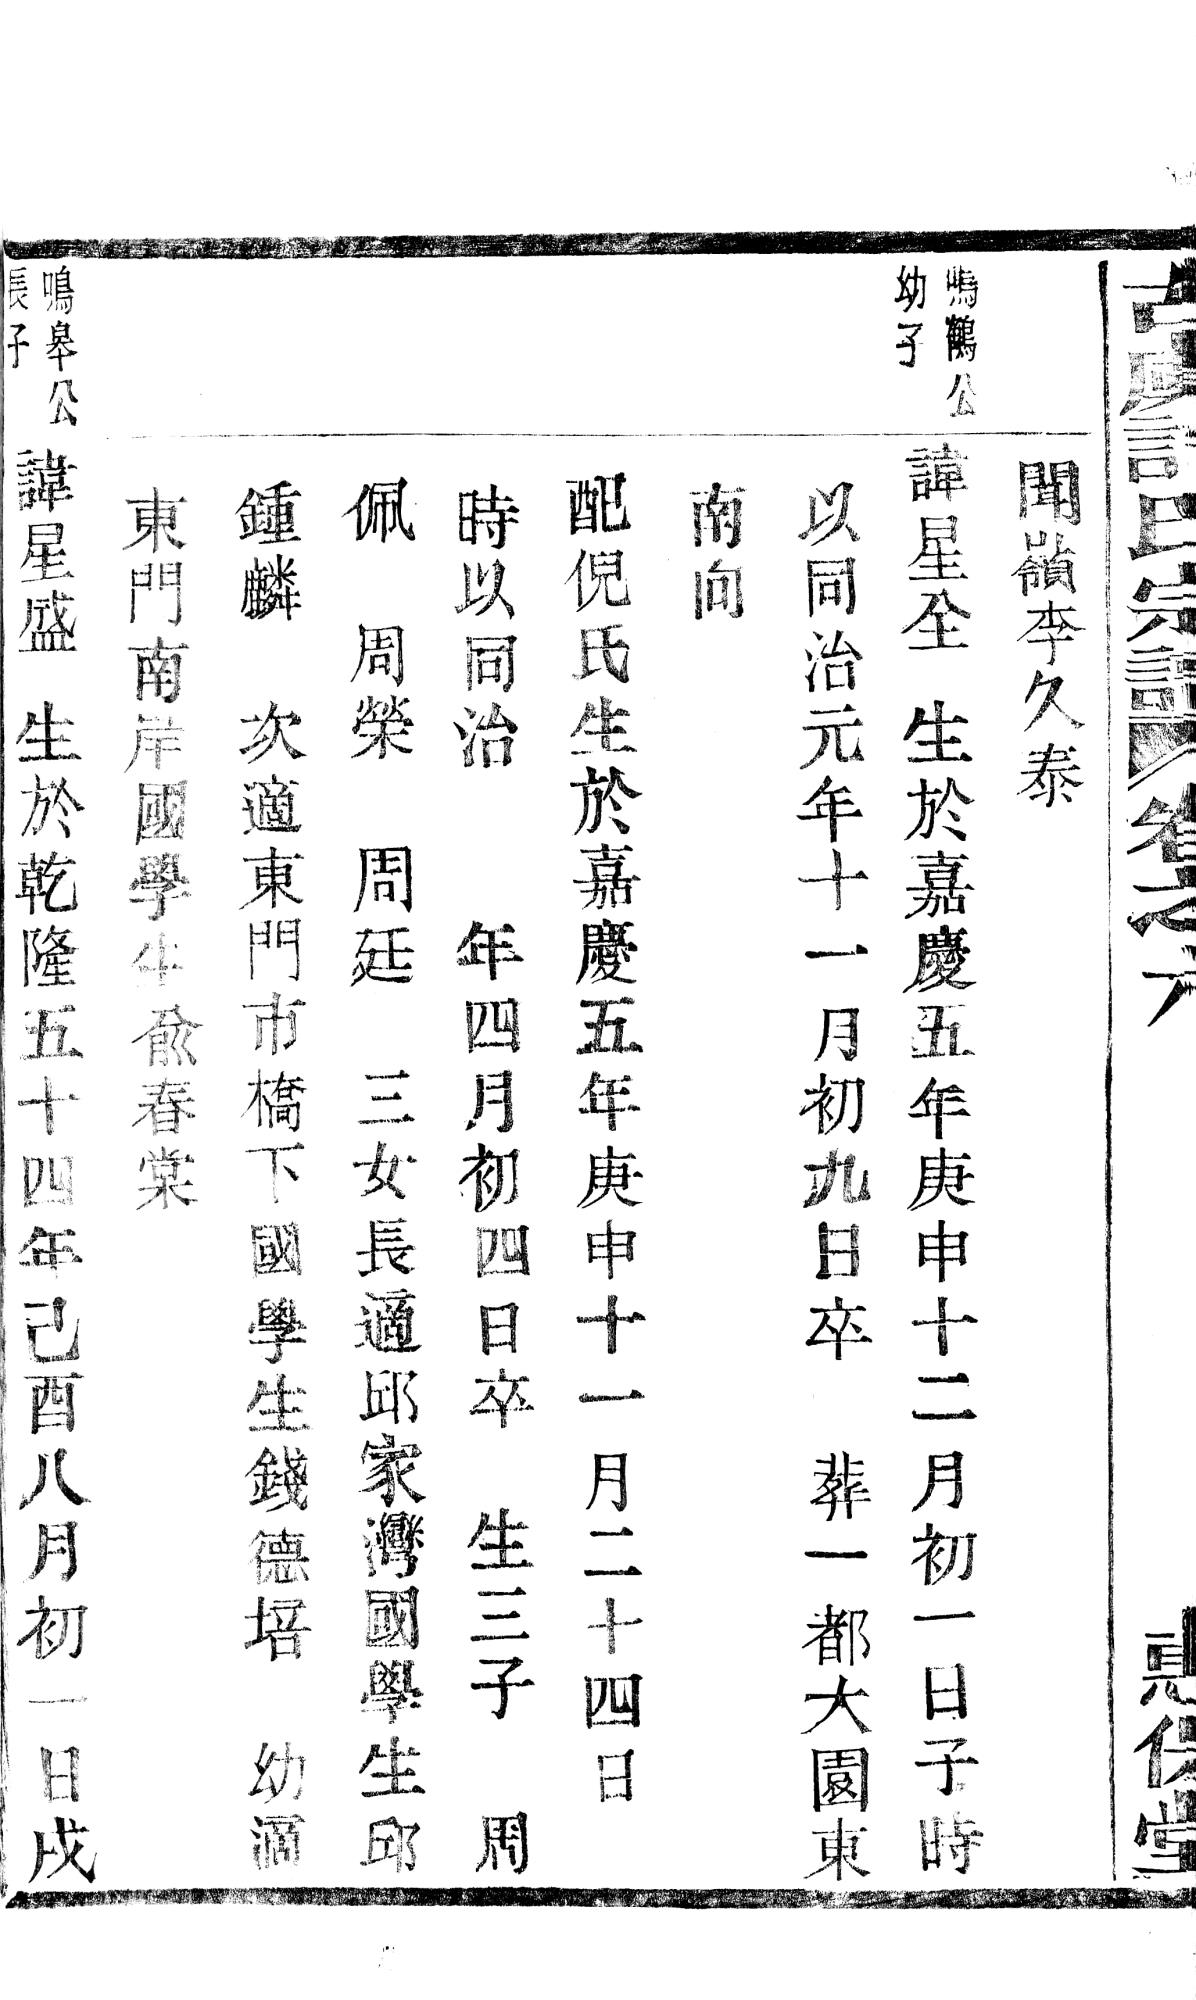 古虞許氏宗譜 卷之六
惠保堂
聞嶺李久泰
鳴鶴公
幼子
諱星全 生於嘉慶五年庚申十二月初一日子時
以同治元年十一月初九日卒 葬一都大園東
南向
配倪氏生於嘉慶五年庚申十一月二十四日
時以同治 年四月初四日卒 生三子 周
佩 周榮 周廷 三女長適邱家灣國學生邱
鍾麟 次適東門市橋下國學生錢德培 幼適
東門南岸國學生俞春棠
鳴皋公
長子
諱星盛 生於乾隆五十四年己酉八月初一日戌